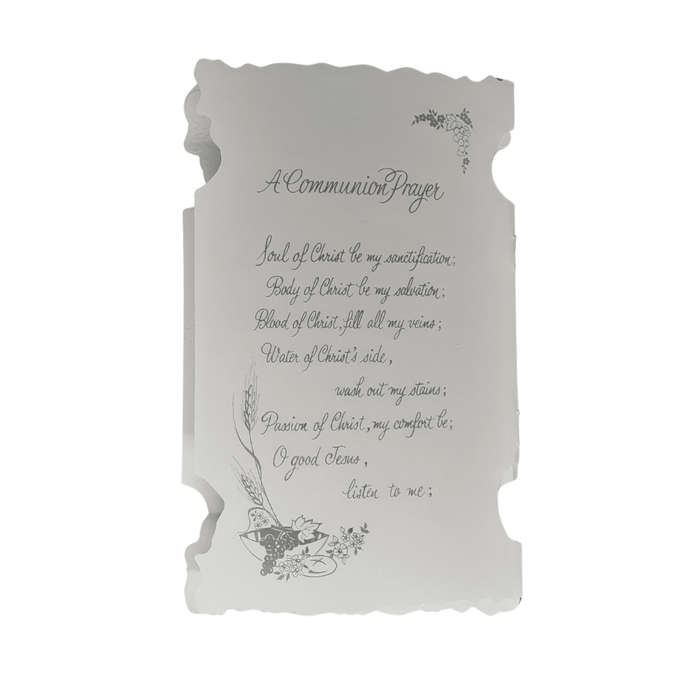 A Communion Prayer
Soul of Christ be my sanctification;
Body of Christ be my salvation;
Blood of Christ, fill all my veins;
Water of Christ's side,
wash out my stains;
Passion of Christ, my comfort be;
O good Jesus,
listen to me;